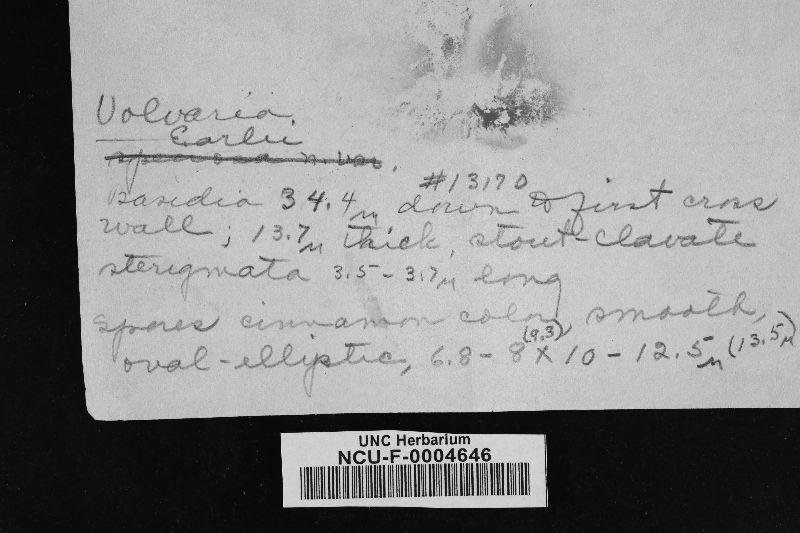 Volvaria
Earlei
speciosa n. var.
#13170
Basidia 34.4µ down to first cross
wall; 13.7µ thick, stout-clavate
sterigmata 3.5-3.7µ long
Spores cinnamon color, smooth,
oval-elliptic, 6.8-8 (9.3) x 10-12.5µ (13.5µ)
UNC Herbarium
NCU-F-0004646